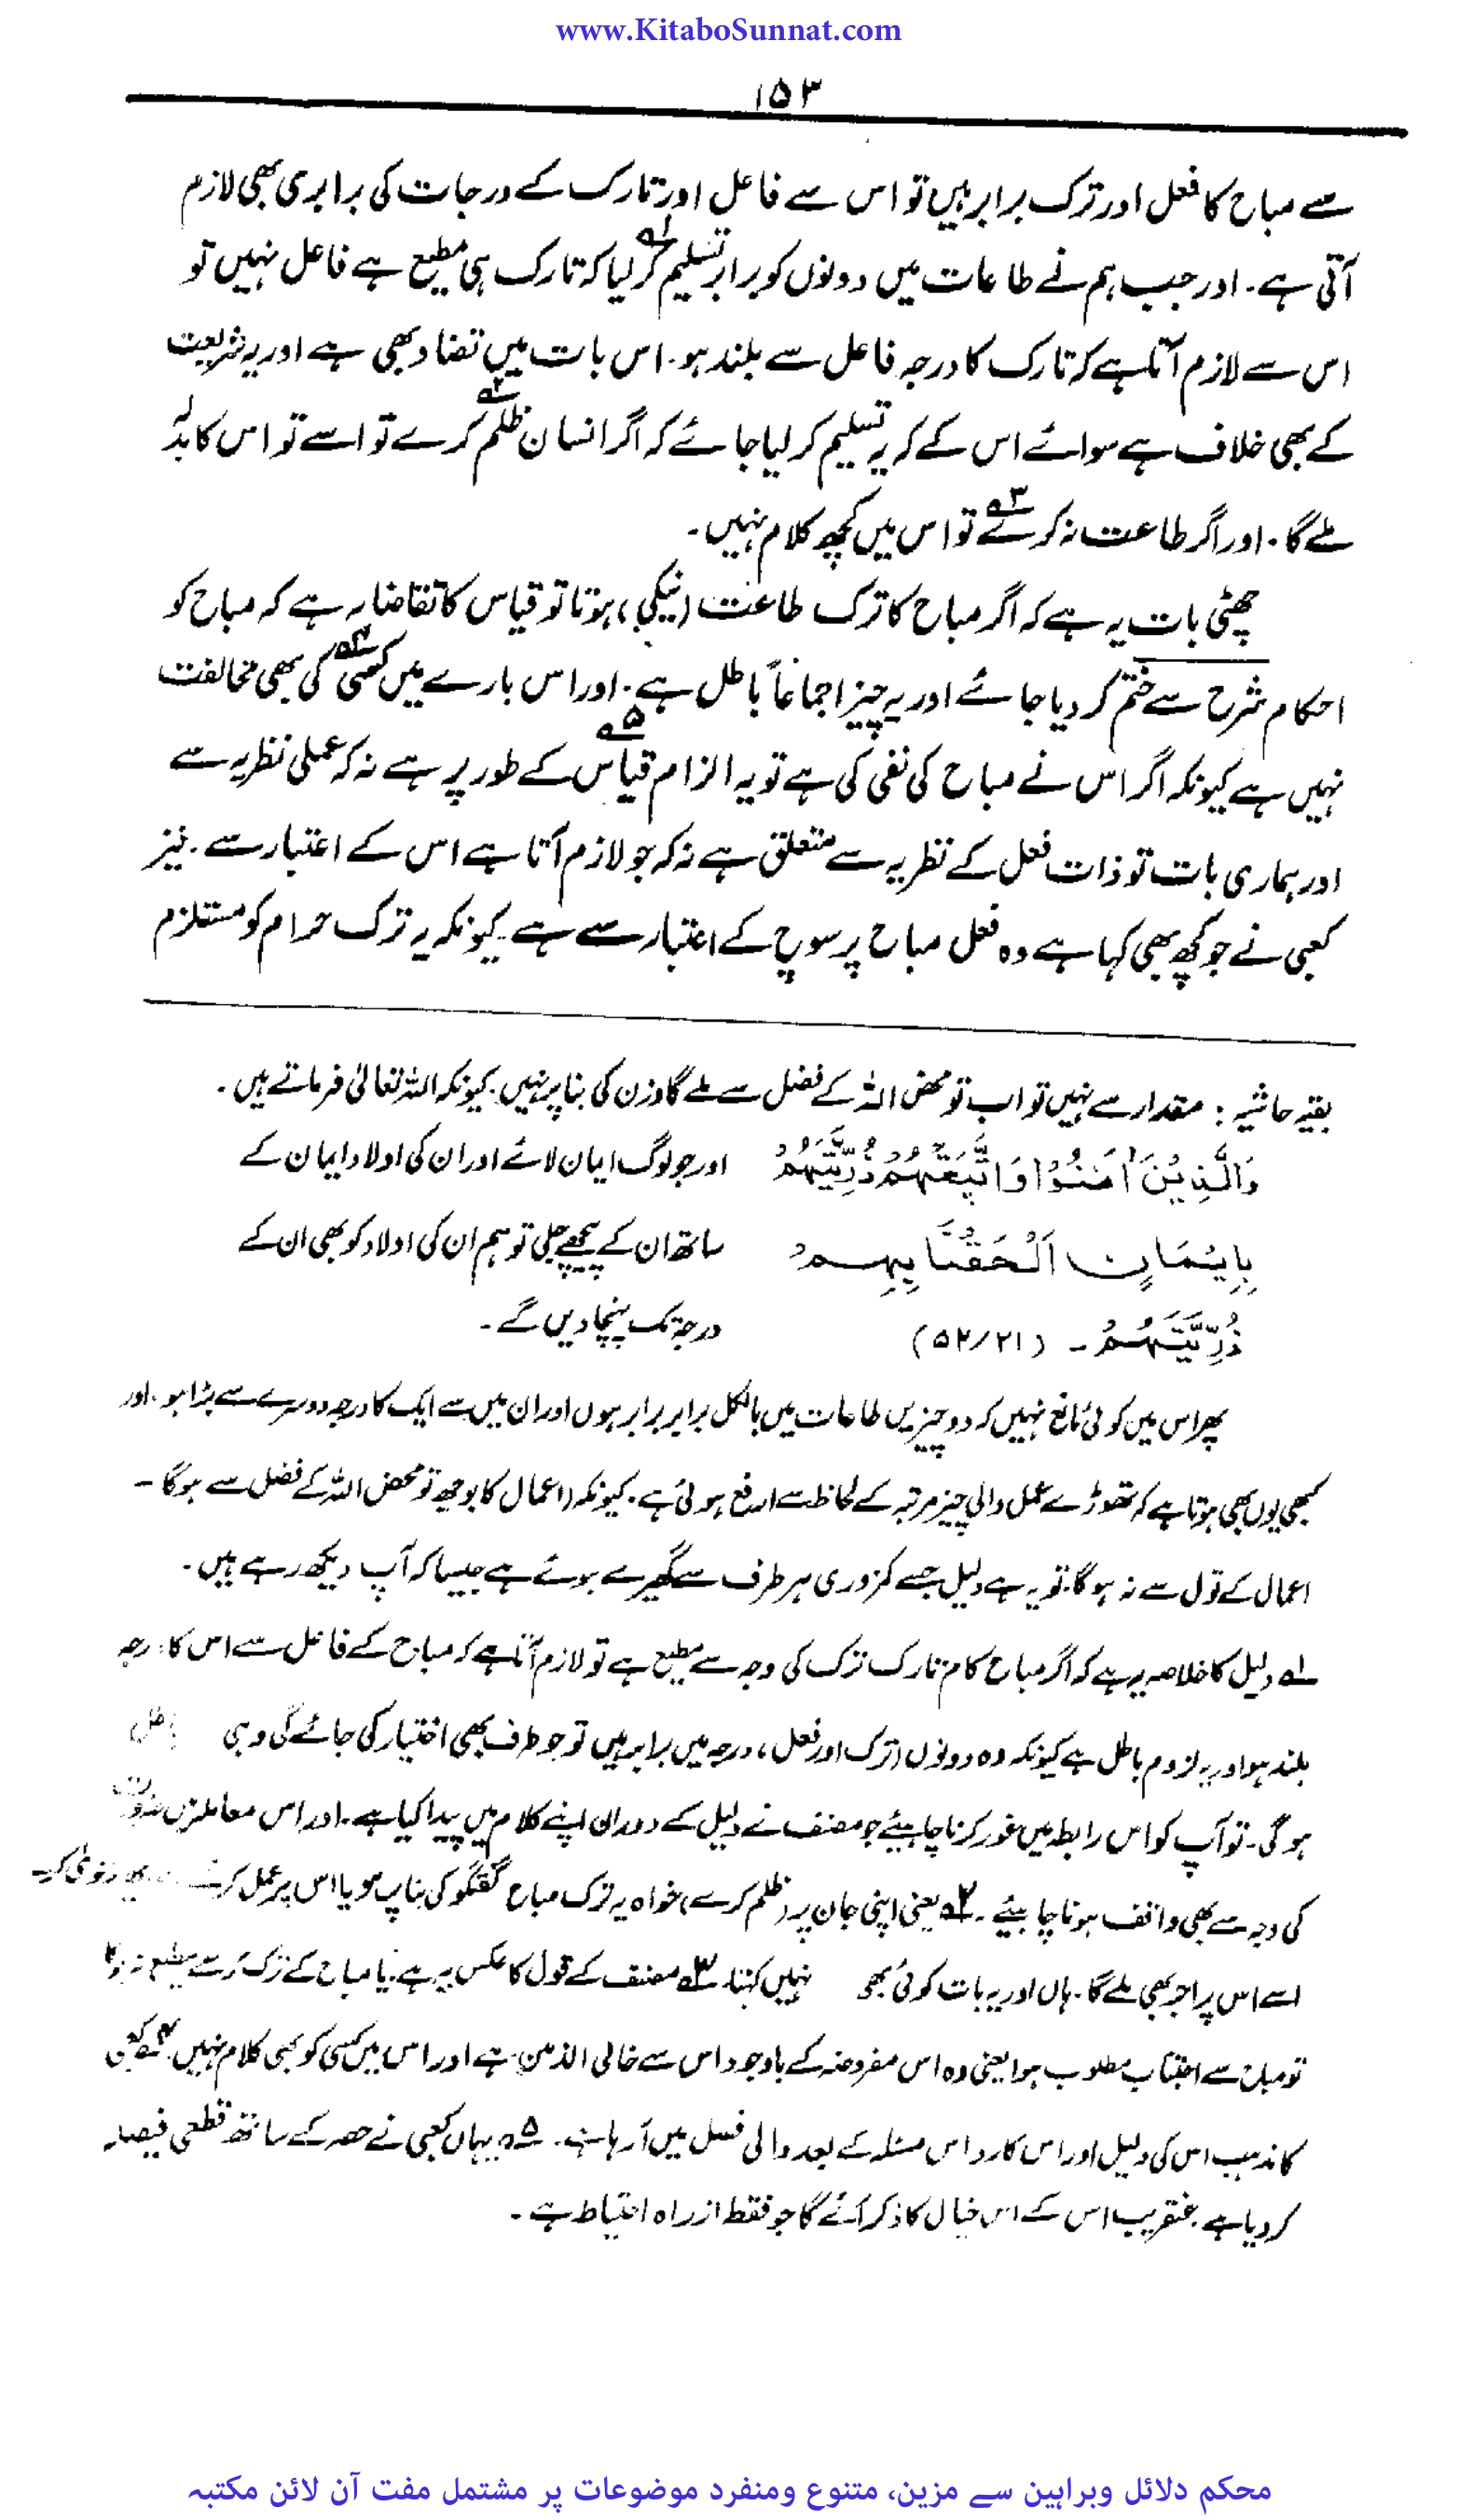 www.KitaboSunnat.com
۱۵۳
سے مباح کا فعل اور ترک برابر ہیں تو اس سے فاعل اور تارک کے درجات کی برابری بھی لازم
آتی ہے۔ اور جب ہم نے طاعات میں دونوں کو برابر تسلیم کر لیا کہ تارک ہی مطیع ہے فاعل نہیں تو
اس سے لازم آتا ہے کہ تارک کا درجہ فاعل سے بلند ہو۔ اس بات میں تضاد بھی ہے اور یہ شریعت
کے بھی خلاف ہے سوائے اس کے کہ یہ تسلیم کر لیا جائے کہ اگر انسان ظلم کرے تو اسے تو اس کا بدلہ
ملے گا۔ اور اگر طاعت نہ کرے تو اس میں کچھ کلام نہیں۔
چھٹی بات یہ ہے کہ اگر مباح کا ترک طاعت (نیکی) ہوتا تو قیاس کا تقاضا یہ ہے کہ مباح کو
احکام شرح سے ختم کر دیا جائے اور یہ چیز اجماعاً باطل ہے۔ اور اس بارے میں کعبی کی بھی مخالفت
نہیں ہے کیونکہ اگر اس نے مباح کی نفی کی ہے تو یہ الزام قیاس کے طور پر ہے نہ کہ عملی نظریہ سے
اور ہماری بات تو ذات فعل کے نظریہ سے متعلق ہے نہ کہ جو لازم آتا ہے اس کے اعتبار سے۔ نیز
کعبی نے جو کچھ بھی کہا ہے وہ فعل مباح پر سوچ کے اعتبار سے ہے۔ کیونکہ یہ ترک حرام کو مستلزم
بقیہ حاشیہ : مقدار سے نہیں تو اب تو محض اللہ کے فضل سے ملے گا وزن کی بنا پر نہیں۔ کیونکہ اللہ تعالیٰ فرماتے ہیں۔
وَالَّذِيْنَ اٰمَنُوْا وَاتَّبَعَتْهُمْ ذُرِّيَّتُهُمْ اور جو لوگ ایمان لائے اور ان کی اولاد ایمان کے
بِاِيْمَانٍ اَلْحَقْنَا بِهِمْ ساتھ ان کے پیچھے چلی تو ہم ان کی اولاد کو بھی ان کے
ذُرِّيَّتَهُمْ۔ (۵۲/۲۱) درجہ تک پہنچا دیں گے۔
پھر اس میں کوئی مانع نہیں کہ دو چیزیں طاعات میں بالکل برابر برابر ہوں اور ان میں سے ایک کا درجہ دوسرے سے بڑا ہو۔ اور
کبھی یوں بھی ہوتا ہے کہ تھوڑے عمل والی چیز مرتبہ کے لحاظ سے ارفع ہوتی ہے۔ کیونکہ (اعمال کا بوجھ تو محض اللہ کے فضل سے ہوگا۔
اعمال کے تول سے نہ ہوگا۔ تو یہ ہے دلیل جسے کمزوری ہر طرف سے گھیرے ہوئے ہے جیسا کہ آپ دیکھ رہے ہیں۔
لہ دلیل کا خلاصہ یہ ہے کہ اگر مباح کام تارک ترک کی وجہ سے مطیع ہے تو لازم آتا ہے کہ مباح کے فاعل سے اس کا درجہ
بلند ہو اور یہ لزوم باطل ہے کیونکہ وہ دونوں (ترک اور فعل) درجہ میں برابر ہیں تو جو طرف بھی اختیار کی جائے گی وہی باطل
ہوگی۔ تو آپ کو اس رابطہ میں غور کرنا چاہیئے جو مصنف نے دلیل کے دوران اپنے کلام میں پیدا کیا ہے۔ اور اس معاملہ میں
کی وجہ سے بھی واقف ہونا چاہیئے۔ ۲؎ یعنی اپنی جان پر (ظلم کرے) خواہ یہ ترک مباح گفتگو کی بنا پر ہو یا اس پر عمل
اسے اس پر اجر بھی ملے گا۔ ہاں اور یہ بات کوئی بھی نہیں کہتا۔ ۳؎ مصنف کے قول کا عکس یہ ہے یا مباح کے ترک سے مطیع نہ ہوگا
تو مباح سے اجتناب مطلوب ہوا یعنی وہ اس مفروضہ کے باوجود اس سے خالی الذہن ہے اور اس میں کسی کو بھی کلام نہیں۔ ۴؎ کعبی
کا مذہب اس کی دلیل اور اس کا رد اس مسئلہ کے بعد والی فصل میں آرہا ہے۔ ۵؎ یہاں کعبی نے حصہ کے ساتھ قطعی فیصلہ
کر دیا ہے۔ عنقریب اس کے اس خیال کا ذکر آئے گا جو فقط از راہ احتیاط ہے۔
محکم دلائل وبراہین سے مزین، متنوع ومنفرد موضوعات پر مشتمل مفت آن لائن مکتبہ